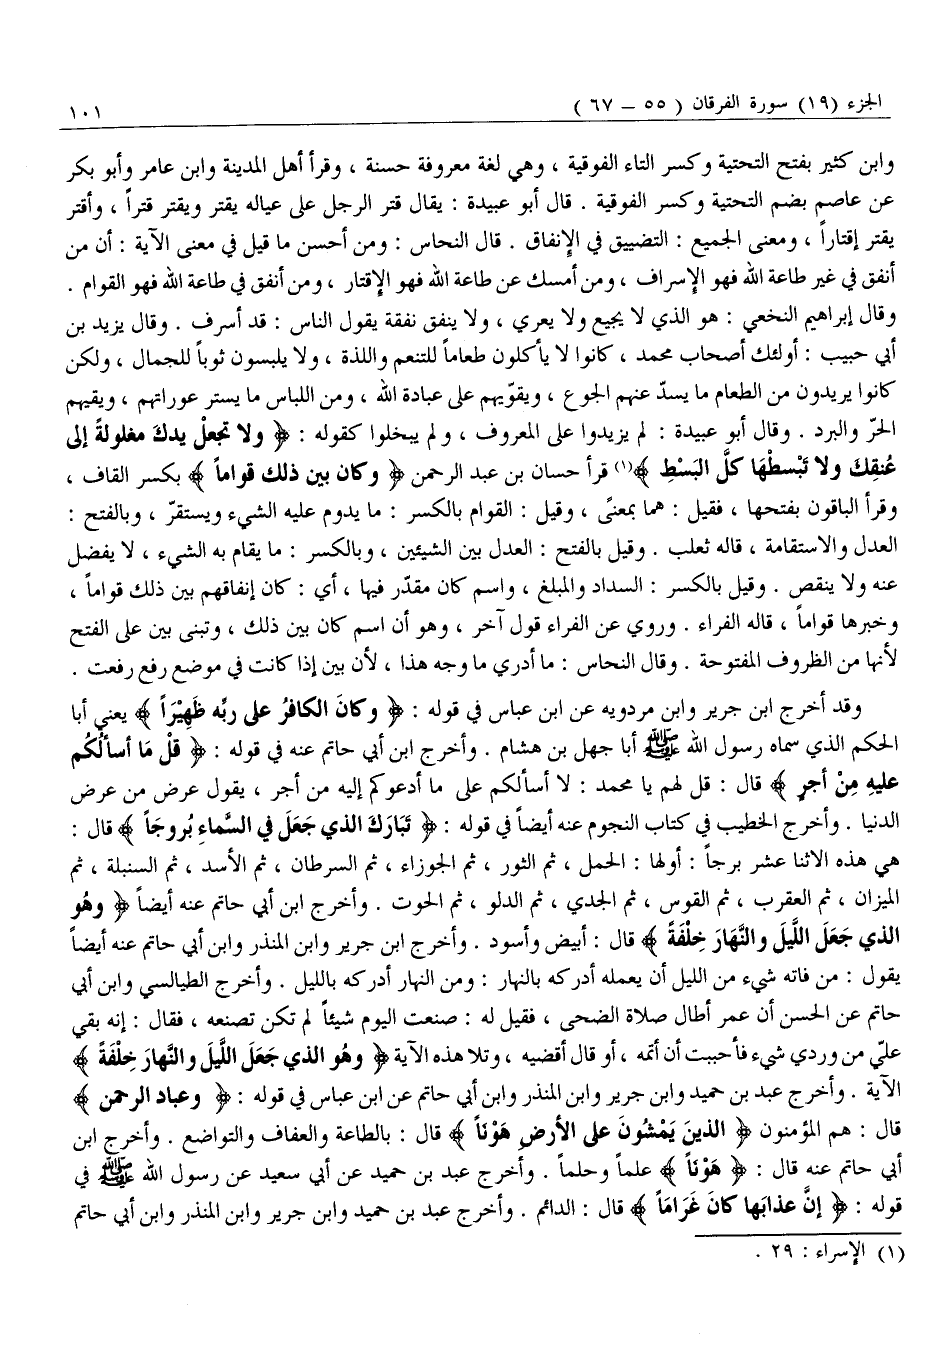 الجزء (١٩) سورة الفرقان ( ٥٥ ــ ٦٧ ) ١٠١
وابن كثير بفتح التحتية وكسر التاء الفوقية ، وهي لغة معروفة حسنة ، وقرأ أهل المدينة وابن عامر وأبو بكر
عن عاصم بضم التحتية وكسر الفوقية . قال أبو عبيدة : يقال قتر الرجل على عياله يقتر ويقتر قتراً ، وأقتر
يقتر إقتاراً ، ومعنى الجميع : التضييق في الإنفاق . قال النحاس : ومن أحسن ما قيل في معنى الآية : أن من
أنفق في غير طاعة الله فهو الإسراف ، ومن أمسك عن طاعة الله فهو الإقتار ، ومن أنفق في طاعة الله فهو القوام .
وقال إبراهيم النخعي : هو الذي لا يجيع ولا يعري ، ولا ينفق نفقة يقول الناس : قد أسرف . وقال يزيد بن
أبي حبيب : أولئك أصحاب محمد ، كانوا لا يأكلون طعاماً للتنعم واللذة ، ولا يلبسون ثوباً للجمال ، ولكن
كانوا يريدون من الطعام ما يسدّ عنهم الجوع ، ويقوّيهم على عبادة الله ، ومن اللباس ما يستر عوراتهم ، ويقيهم
الحرّ والبرد . وقال أبو عبيدة : لم يزيدوا على المعروف ، ولم يبخلوا كقوله : ﴿ ولا تجعلْ يدكَ مغلولةً إلى
عُنقِكَ ولا تَبْسطْهَا كلَّ البَسْطِ ﴾(١) قرأ حسان بن عبد الرحمن ﴿ وكان بين ذلك قواماً ﴾ بكسر القاف ،
وقرأ الباقون بفتحها ، فقيل : هما بمعنىً ، وقيل : القوام بالكسر : ما يدوم عليه الشيء ويستقرّ ، وبالفتح :
العدل والاستقامة ، قاله ثعلب . وقيل بالفتح : العدل بين الشيئين ، وبالكسر : ما يقام به الشيء ، لا يفضل
عنه ولا ينقص . وقيل بالكسر : السداد والمبلغ ، واسم كان مقدّر فيها ، أي : كان إنفاقهم بين ذلك قواماً ،
وخبرها قواماً ، قاله الفراء . وروي عن الفراء قول آخر ، وهو أن اسم كان بين ذلك ، وتبنى بين على الفتح
لأنها من الظروف المفتوحة . وقال النحاس : ما أدري ما وجه هذا ، لأن بين إذا كانت في موضع رفع رفعت .
وقد أخرج ابن جرير وابن مردويه عن ابن عباس في قوله : ﴿ وكانَ الكافرُ على ربِّه ظَهِيْرَاً ﴾ يعني أبا
الحكم الذي سماه رسول الله ﷺ أبا جهل بن هشام . وأخرج ابن أبي حاتم عنه في قوله : ﴿ قلْ مَا أسألُكُم
عليهِ مِنْ أجرٍ ﴾ قال : قل لهم يا محمد : لا أسألكم على ما أدعوكم إليه من أجر ، يقول عرض من عرض
الدنيا . وأخرج الخطيب في كتاب النجوم عنه أيضاً في قوله : ﴿ تَبَارَكَ الذي جَعَلَ في السَّماءِ بُروجَاً ﴾ قال :
هي هذه الاثنا عشر برجاً : أولها : الحمل ، ثم الثور ، ثم الجوزاء ، ثم السرطان ، ثم الأسد ، ثم السنبلة ، ثم
الميزان ، ثم العقرب ، ثم القوس ، ثم الجدي ، ثم الدلو ، ثم الحوت . وأخرج ابن أبي حاتم عنه أيضاً ﴿ وهُو
الذي جَعَلَ اللَّيلَ والنَّهَارَ خِلْفَةً ﴾ قال : أبيض وأسود . وأخرج ابن جرير وابن المنذر وابن أبي حاتم عنه أيضاً
يقول : من فاته شيء من الليل أن يعمله أدركه بالنهار : ومن النهار أدركه بالليل . وأخرج الطيالسي وابن أبي
حاتم عن الحسن أن عمر أطال صلاة الضحى ، فقيل له : صنعت اليوم شيئاً لم تكن تصنعه ، فقال : إنه بقي
عليّ من وردي شيء فأحببت أن أتمه ، أو قال أقضيه ، وتلا هذه الآية ﴿ وهُو الذي جَعَلَ اللَّيلَ والنَّهارَ خِلْفَةً ﴾
الآية . وأخرج عبد بن حميد وابن جرير وابن المنذر وابن أبي حاتم عن ابن عباس في قوله : ﴿ وعباد الرحمن ﴾
قال : هم المؤمنون ﴿ الذينَ يَمْشُونَ على الأرضِ هَوْنَاً ﴾ قال : بالطاعة والعفاف والتواضع . وأخرج ابن
أبي حاتم عنه قال : ﴿ هَوْنَاً ﴾ علماً وحلماً . وأخرج عبد بن حميد عن أبي سعيد عن رسول الله ﷺ في
قوله : ﴿ إنَّ عذابَها كانَ غَرَامَاً ﴾ قال : الدائم . وأخرج عبد بن حميد وابن جرير وابن المنذر وابن أبي حاتم
(١) الإسراء : ٢٩ .